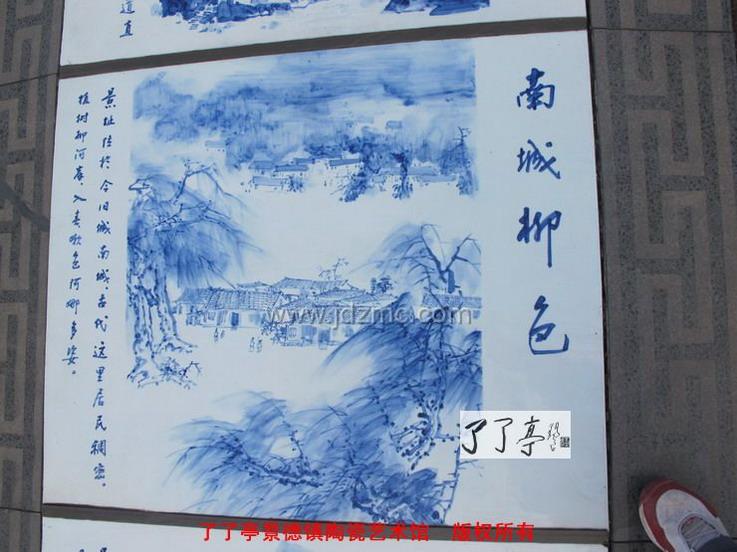 道直
南城柳色
景址位於今旧城南城古代这里居民稠密。
植树柳河岸入春柳色阿娜多姿。
www.jdzmc.com
了了亭
了了亭景德镇陶瓷艺术馆 版权所有